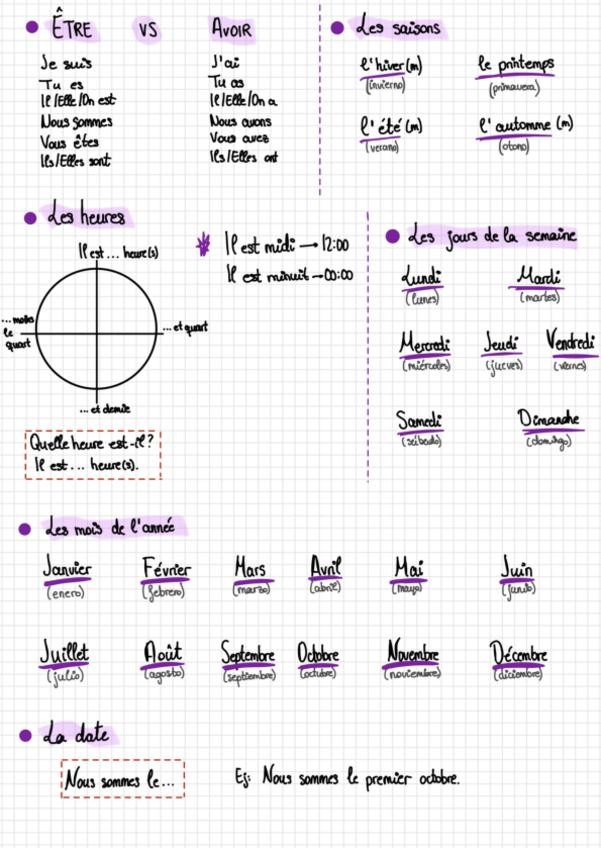 ÊTRE VS AVOIR
Je suis
Tu es
Il/Elle/On est
Nous sommes
Vous êtes
Ils/Elles sont
J'ai
Tu as
Il/Elle/On a
Nous avons
Vous avez
Ils/Elles ont
Les saisons
l'hiver (m)
(invierno)
le printemps
(primavera)
l'été (m)
(verano)
l'automne (m)
(otono)
Les heures
Il est... heure(s)
...moins
le
quart
... et quart
... et demie
Quelle heure est-il?
Il est... heure(s).
Il est midi → 12:00
Il est minuit → 00:00
Les jours de la semaine
Lundi
(lunes)
Mardi
(martes)
Mercredi
(miércoles)
Jeudi
(jueves)
Vendredi
(viernes)
Samedi
(sábado)
Dimanche
(domingo)
Les mois de l'année
Janvier
(enero)
Février
(febrero)
Mars
(marzo)
Avril
(abril)
Mai
(mayo)
Juin
(junio)
Juillet
(julio)
Août
(agosto)
Septembre
(septiembre)
Octobre
(octubre)
Novembre
(noviembre)
Décembre
(diciembre)
La date
Nous sommes le...
Ej: Nous sommes le premier octobre.